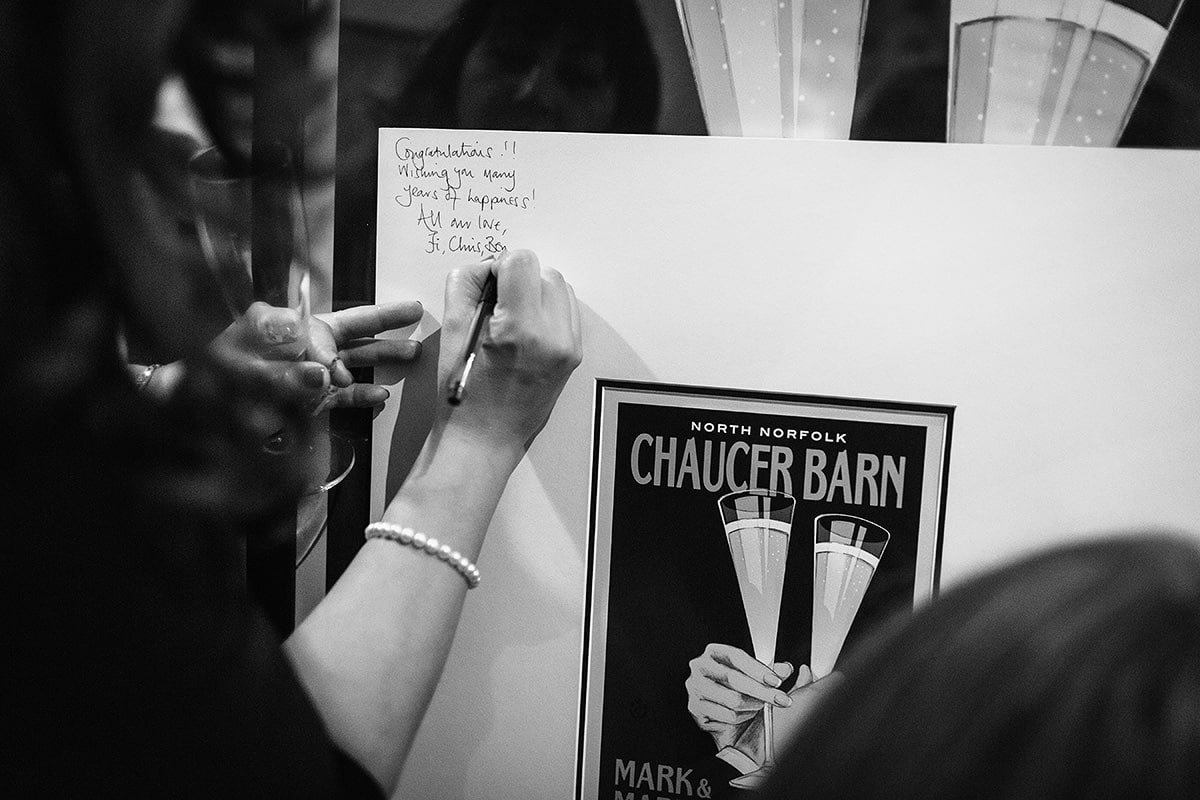 Congratulations!!
Wishing you many
years of happiness!
All our love,
Fi, Chris, Ben
NORTH NORFOLK
CHAUCER BARN
MARK &